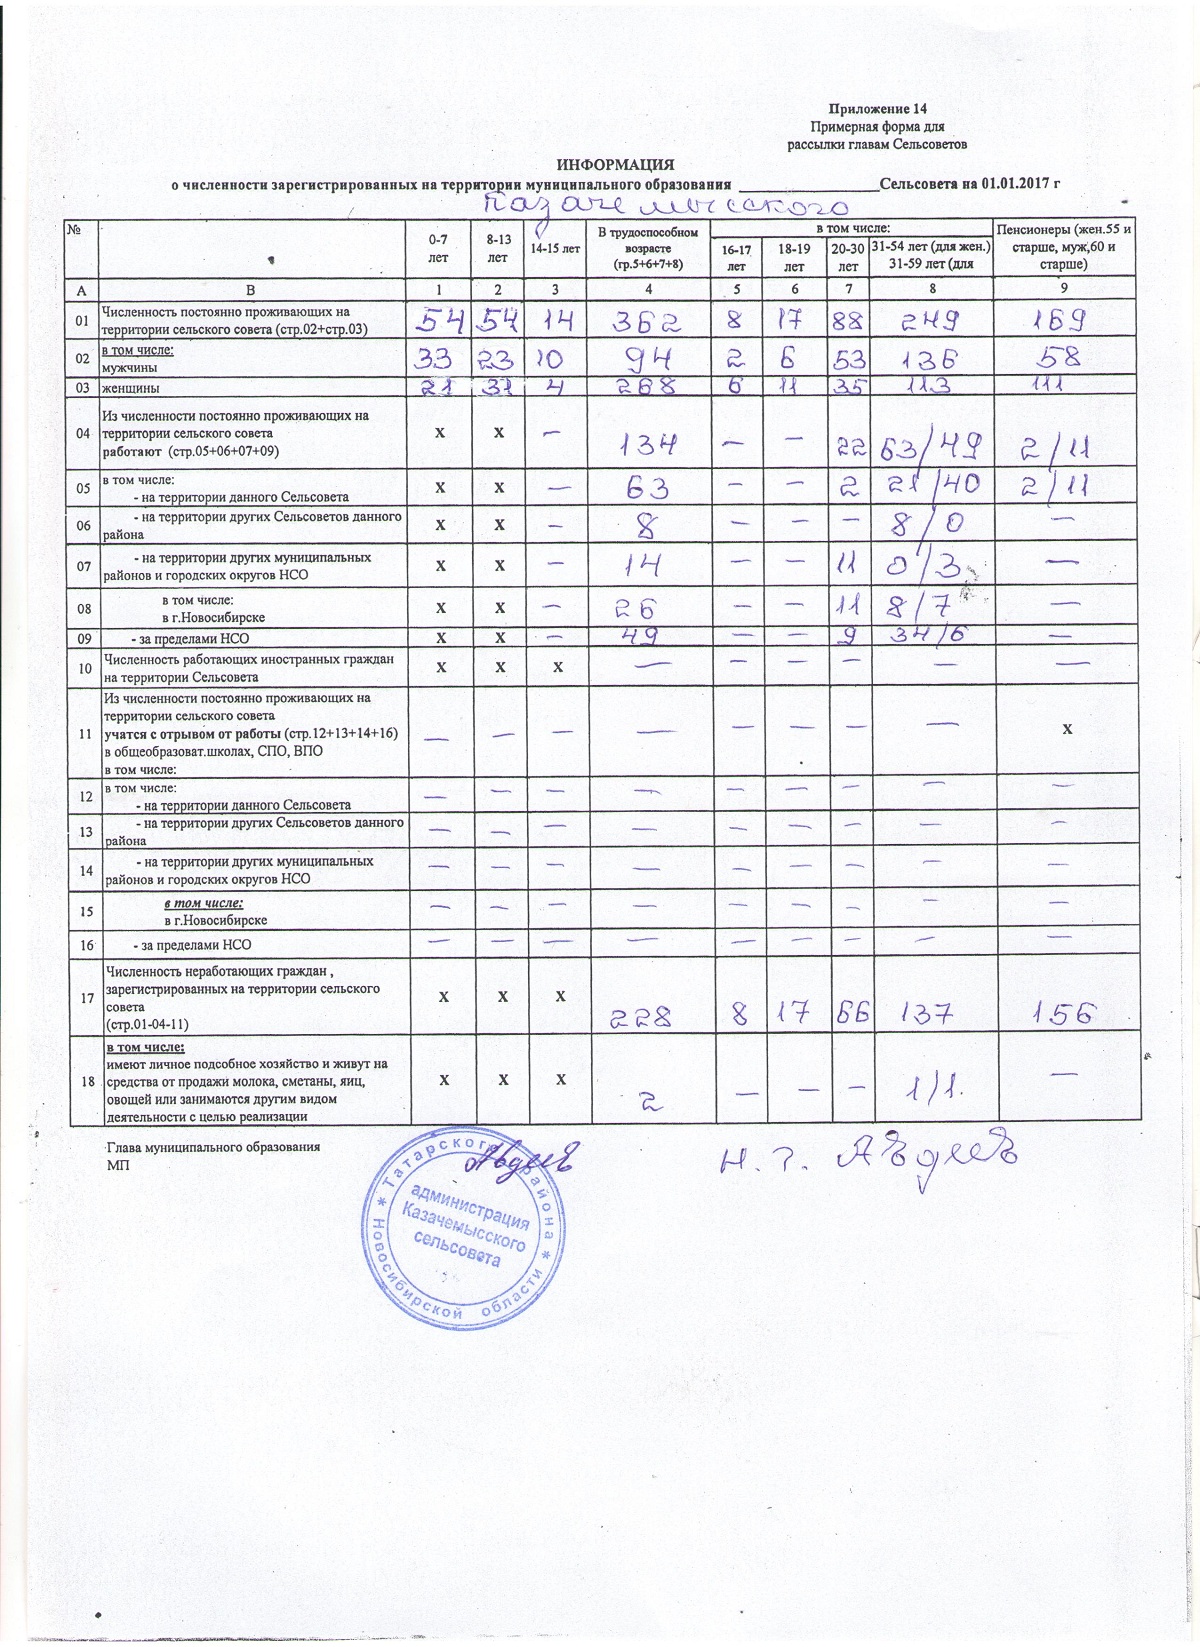 Приложение 14
Примерная форма для
рассылки главам Сельсоветов
ИНФОРМАЦИЯ
о численности зарегистрированных на территории муниципального образования ____________________Сельсовета на 01.01.2017 г
Казачемысского
№ 0-7 лет 8-13 лет 14-15 лет В трудоспособном возрасте (гр.5+6+7+8) в том числе: Пенсионеры (жен.55 и старше, муж,60 и старше)
16-17 лет 18-19 лет 20-30 лет 31-54 лет (для жен.) 31-59 лет (для
А В 1 2 3 4 5 6 7 8 9
01 Численность постоянно проживающих на
территории сельского совета (стр.02+стр.03) 54 54 14 362 8 17 88 249 169
02 в том числе:
мужчины 33 23 10 94 2 6 53 136 58
03 женщины 21 31 4 268 6 11 35 113 111
04 Из численности постоянно проживающих на
территории сельского совета
работают (стр.05+06+07+09) X X — 134 — — 22 63/49 2/11
05 в том числе:
- на территории данного Сельсовета X X — 63 — — 2 21/40 2/11
06 - на территории других Сельсоветов данного
района X X — 8 — — — 8/0 —
07 - на территории других муниципальных
районов и городских округов НСО X X — 14 — — 11 0/3 —
08 в том числе:
в г.Новосибирске X X — 26 — — 11 8/7 —
09 - за пределами НСО X X — 49 — — 9 34/6 —
10 Численность работающих иностранных граждан
на территории Сельсовета X X X — — — — — —
11 Из численности постоянно проживающих на
территории сельского совета
учатся с отрывом от работы (стр.12+13+14+16)
в общеобразоват.школах, СПО, ВПО
в том числе: — — — — — — — — X
12 в том числе:
- на территории данного Сельсовета — — — — — — — — —
13 - на территории других Сельсоветов данного
района — — — — — — — — —
14 - на территории других муниципальных
районов и городских округов НСО — — — — — — — — —
15 в том числе:
в г.Новосибирске — — — — — — — — —
16 - за пределами НСО — — — — — — — — —
17 Численность неработающих граждан ,
зарегистрированных на территории сельского
совета
(стр.01-04-11) X X X 228 8 17 66 137 156
18 в том числе:
имеют личное подсобное хозяйство и живут на
средства от продажи молока, сметаны, яиц,
овощей или занимаются другим видом
деятельности с целью реализации X X X 2 — — — 1/1. —
Глава муниципального образования
МП
Авдеев
Авдеев
Татарского района
Новосибирской области
администрация
Казачемысского
сельсовета